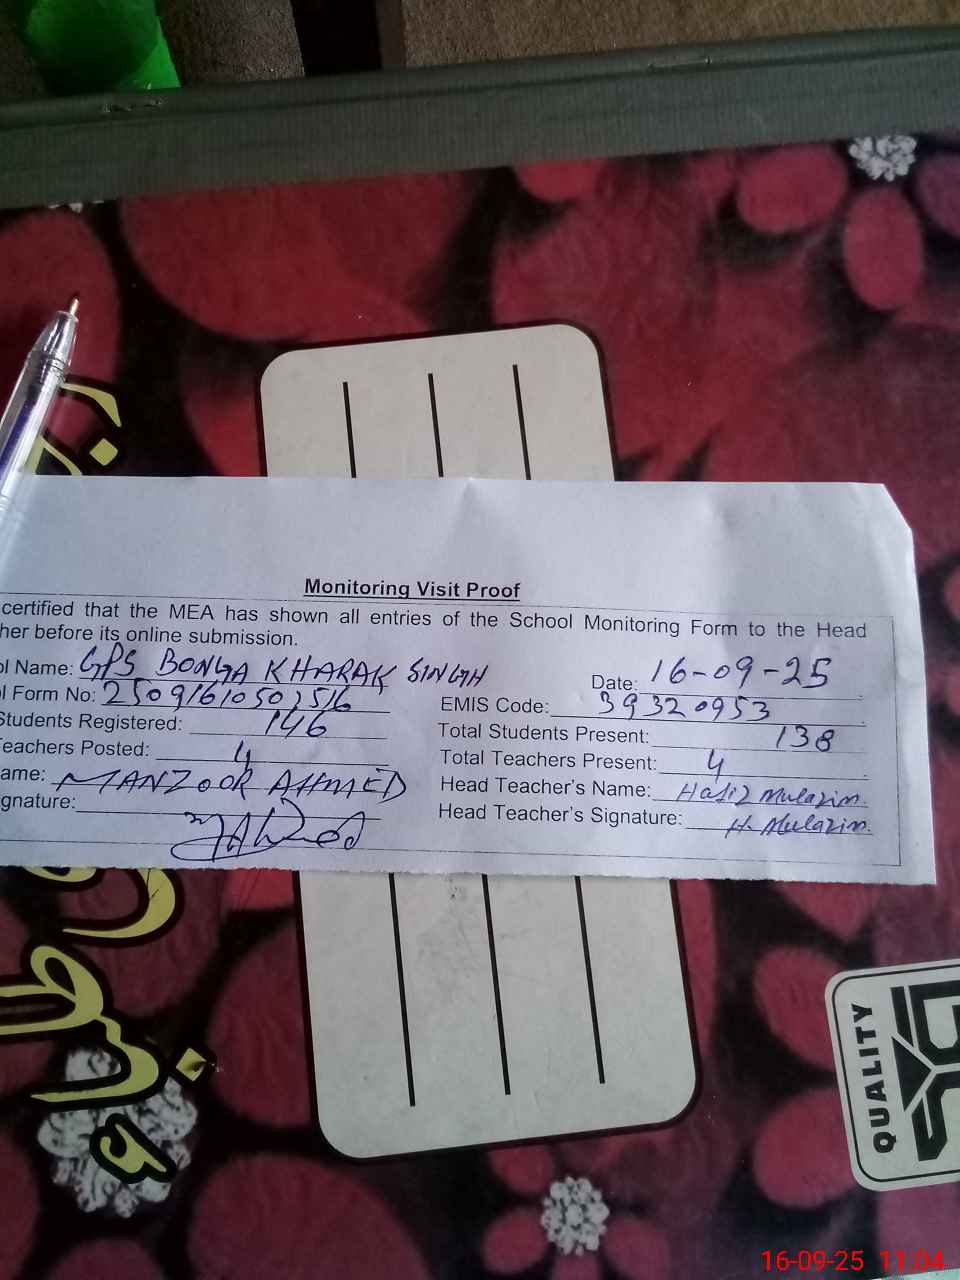 Monitoring Visit Proof
certified that the MEA has shown all entries of the School Monitoring Form to the Head
her before its online submission.
ol Name: GPS BONGA KHARAK SINGH Date: 16-09-25
l Form No: 2509161050,516 EMIS Code: 39320953
Students Registered: 146 Total Students Present: 138
Teachers Posted: 4 Total Teachers Present: 4
ame: MANZOOR AHMED Head Teacher's Name: Hafiz Mulazim.
gnature: Head Teacher's Signature: H. Mulazim.
QUALITY
16-09-25 11:04